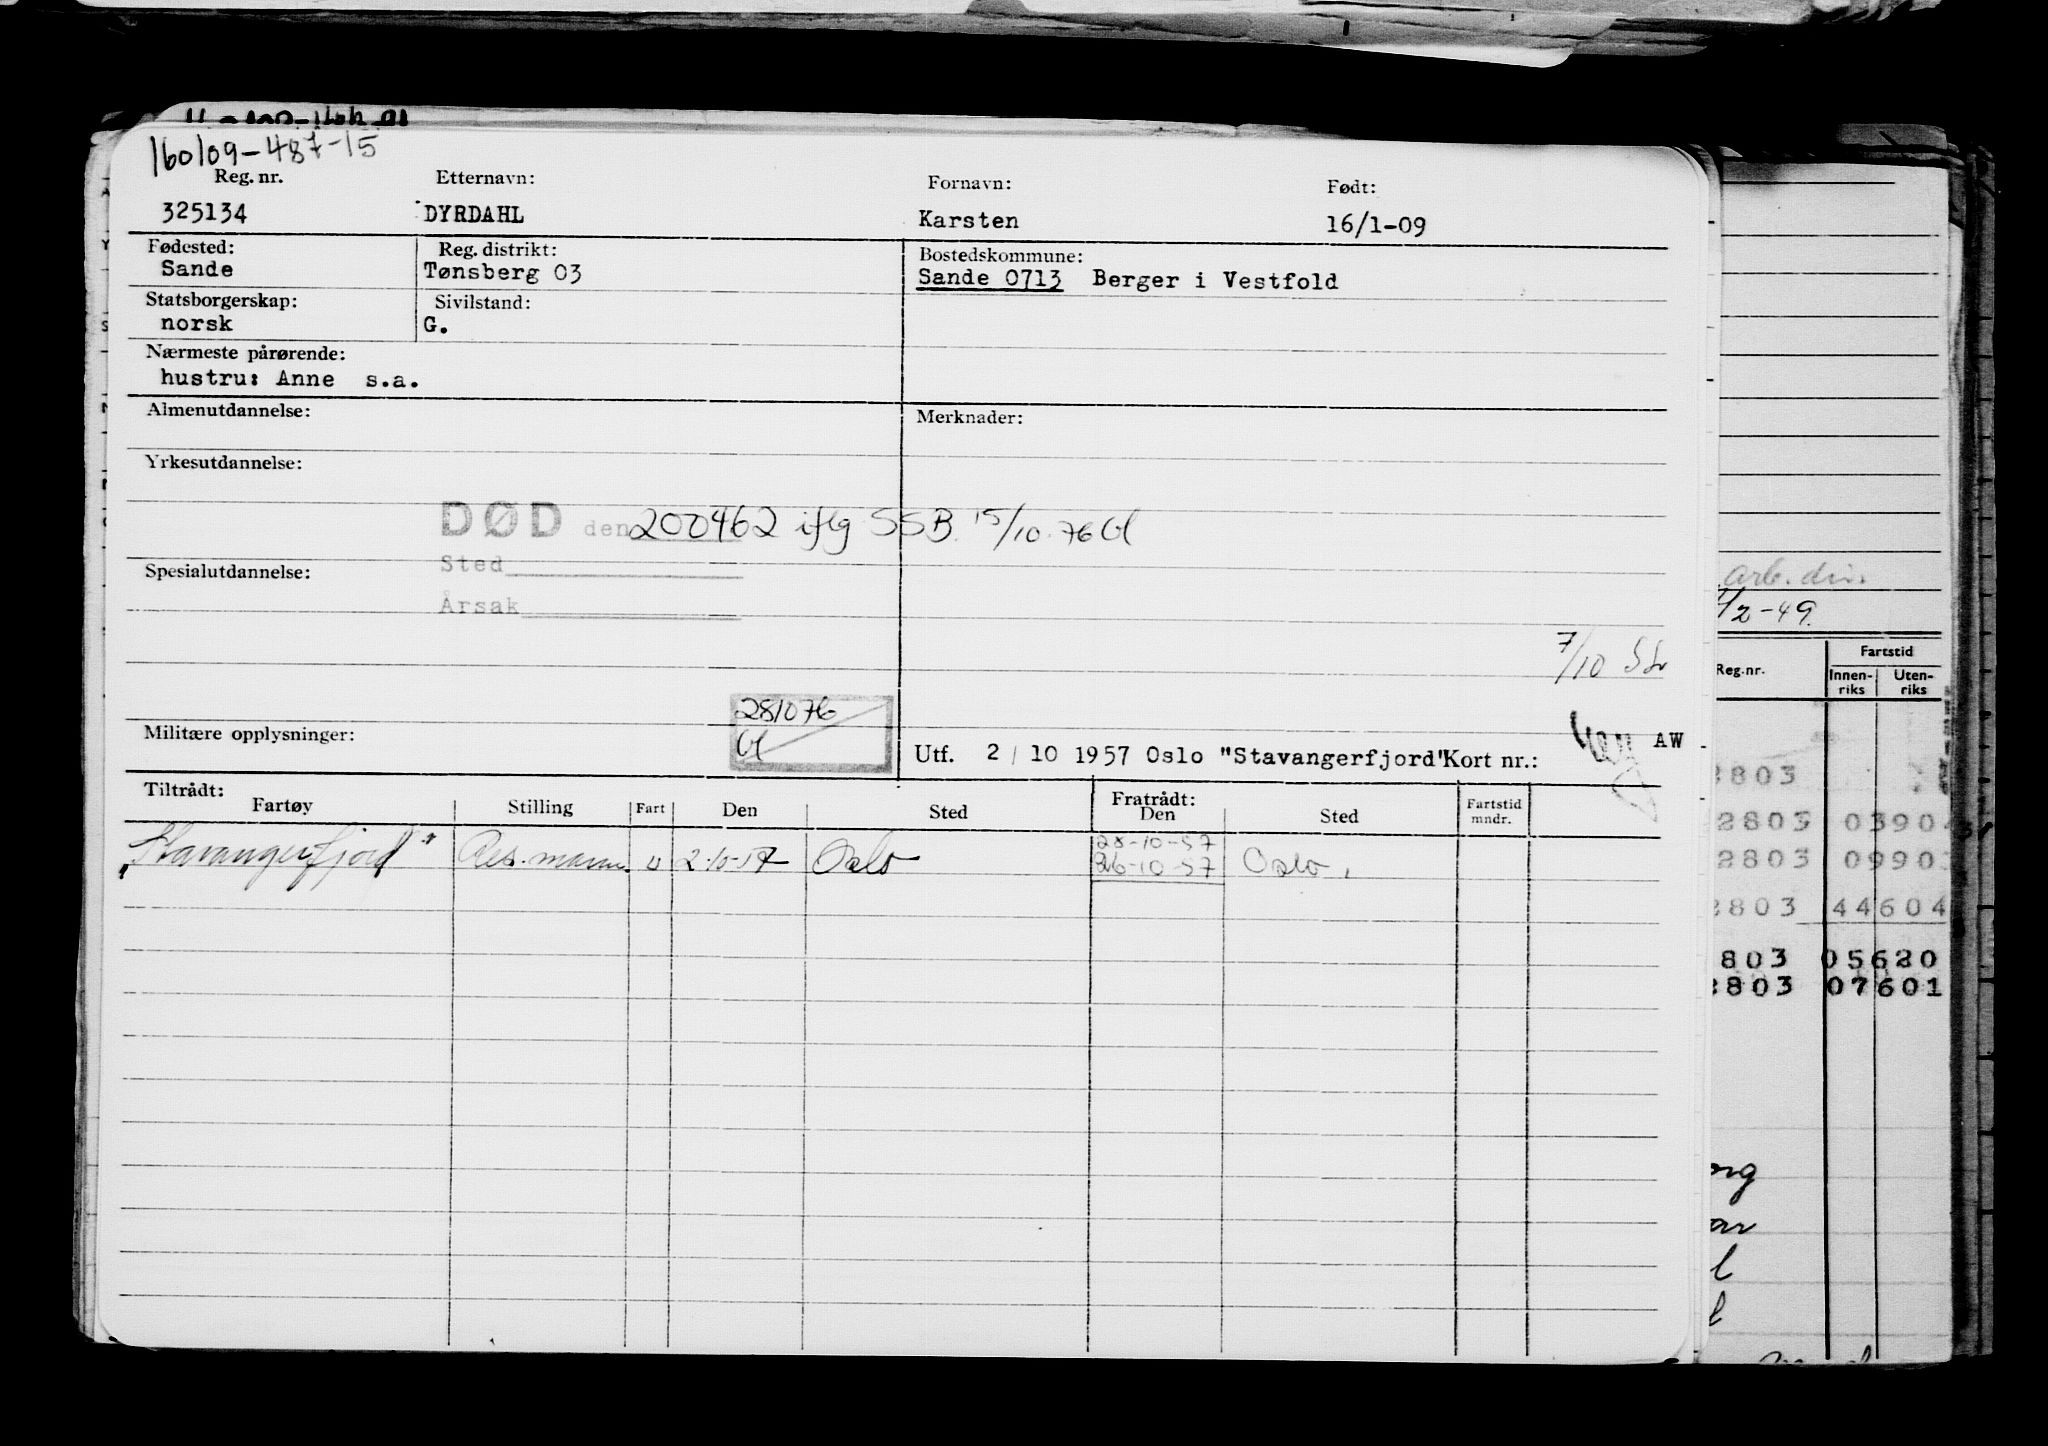 160109-487-15
Reg. nr. Etternavn: Fornavn: Født:
325134 DYRDAHL Karsten 16/1-09
Fødested: Reg. distrikt: Bostedskommune:
Sande Tønsberg 03 Sande 0713 Berger i Vestfold
Statsborgerskap: Sivilstand:
norsk G.
Nærmeste pårørende:
hustru: Anne s.a.
Almenutdannelse: Merknader:
Yrkesutdannelse:
DØD den 200462 iflg SSB. 15/10.76
Sted
Spesialutdannelse:
Årsak
7/10
281076
Militære opplysninger:
Utf. 2/10 1957 Oslo "Stavangerfjord" Kort nr.: AW
Tiltrådt: Fratrådt:
Fartøy Stilling Fart Den Sted Den Sted Fartstid mndr.
28-10-57
"Stavangerfjord" Res. mann. u 2-10-57 Oslo 26-10-57 Oslo.
arb. div.
/2-49.
Reg.nr. Fartstid
Innenriks Utenriks
803
2803 0390
2803 0990
803 44604
803 05620
803 07601